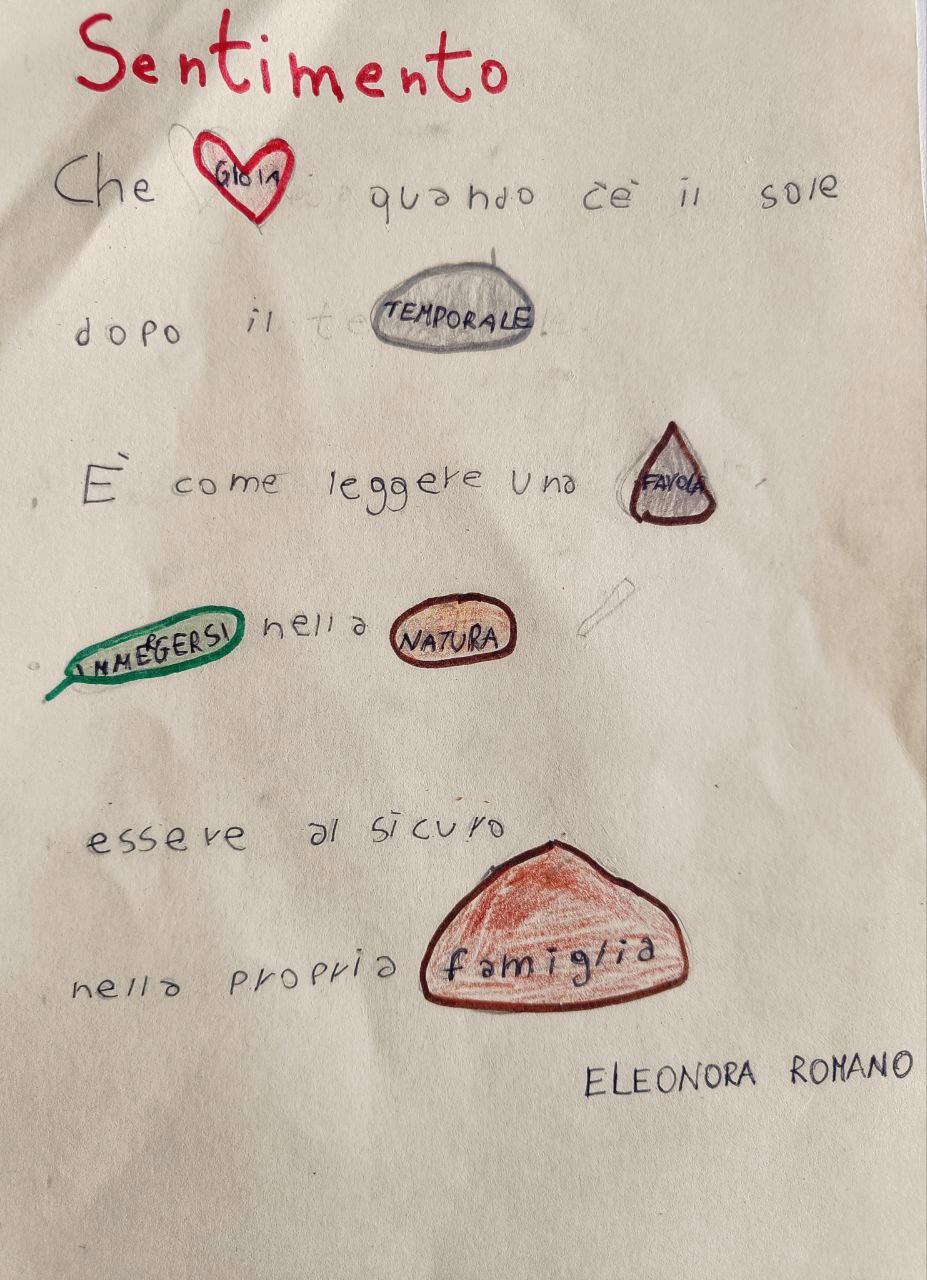 Sentimento
Che GIOIA quando c'è il sole
dopo il TEMPORALE
E' come leggere una FAVOLA
IMMERGERSI nella NATURA
essere al sicuro
nella propria famiglia
ELEONORA ROMANO